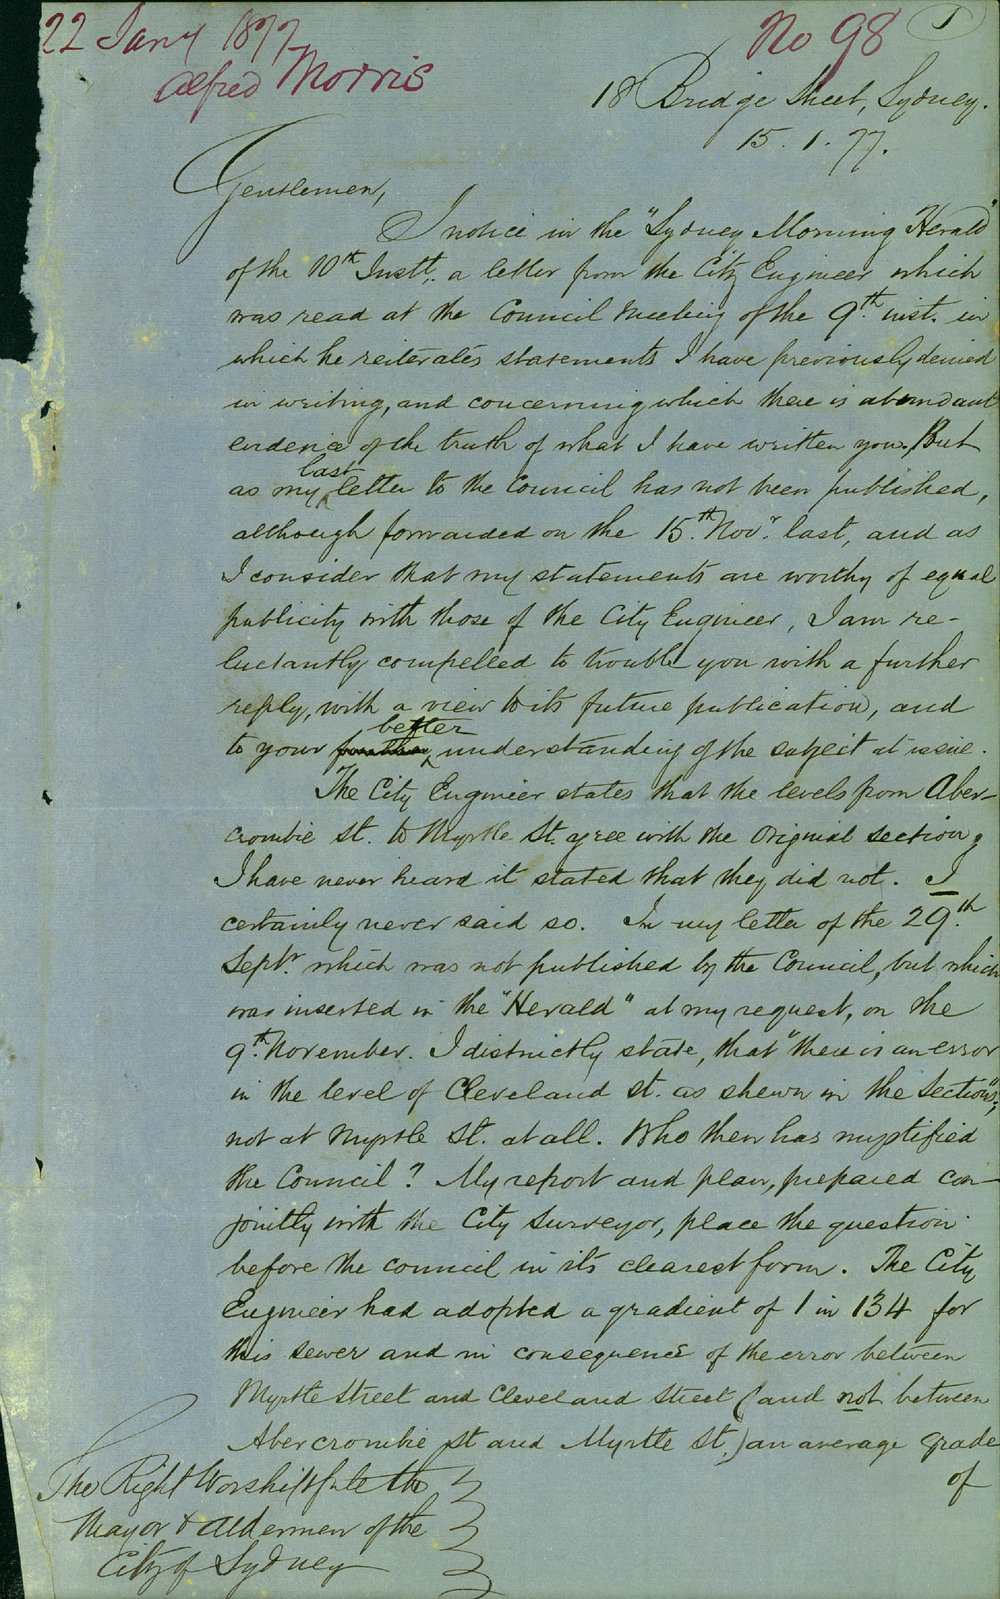 22 Jany 1877
Alfred Morris
No 98
1
18 Bridge Street, Sydney.
15. 1. 77.
Gentlemen,
I notice in the "Sydney Morning Herald"
of the 10th Instt. a letter from the City Engineer which
was read at the Council Meeting of the 9th inst. in
which he reiterates statements I have previously denied
in writing, and concerning which there is abundant
evidence of the truth of what I have written you. But
as my last letter to the Council has not been published,
although forwarded on the 15th Novr. last, and as
I consider that my statements are worthy of equal
publicity with those of the City Engineer, I am re-
luctantly compelled to trouble you with a further
reply, with a view to its future publication, and
to your further better understanding of the subject at issue.
The City Engineer states that the levels from Aber-
crombie St. to Myrtle St. agree with the Original section;
I have never heard it stated that they did not. I
certainly never said so. In my letter of the 29th
Septr. which was not published by the Council, but which
was inserted in the "Herald" at my request, on the
9th November. I distinctly state, that "there is an error
in the level of Cleveland St. as shewn in the Section",
not at Myrtle St. at all. Who then has mystified
the Council? My report and plan, prepared con-
jointly with the City Surveyor, place the question
before the council in its clearest form. The City
Engineer had adopted a gradient of 1 in 134 for
this sewer and in consequence of the error between
Myrtle Street and Cleveland Street (and not between
Abercrombie St and Myrtle St.) an average grade
of
The Right Worshipful the
Mayor & Aldermen of the
City of Sydney